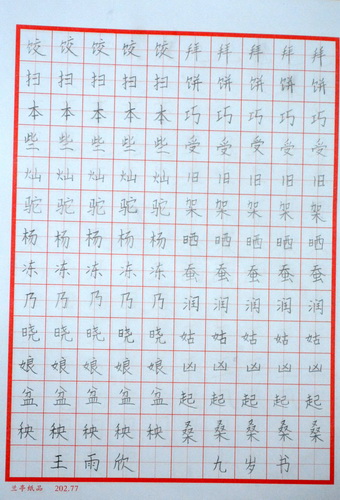 饺饺饺饺饺拜拜拜拜拜
扫扫扫扫扫饼饼饼饼饼
本本本本本巧巧巧巧巧
些些些些些受受受受受
灿灿灿灿灿旧旧旧旧旧
驼驼驼驼驼架架架架架
杨杨杨杨杨晒晒晒晒晒
冻冻冻冻冻蚕蚕蚕蚕蚕
乃乃乃乃乃润润润润润
晓晓晓晓晓姑姑姑姑姑
娘娘娘娘娘凶凶凶凶凶
盆盆盆盆盆起起起起起
秧秧秧秧秧桑桑桑桑桑
王雨欣 九岁书
兰亭纸品 202.77